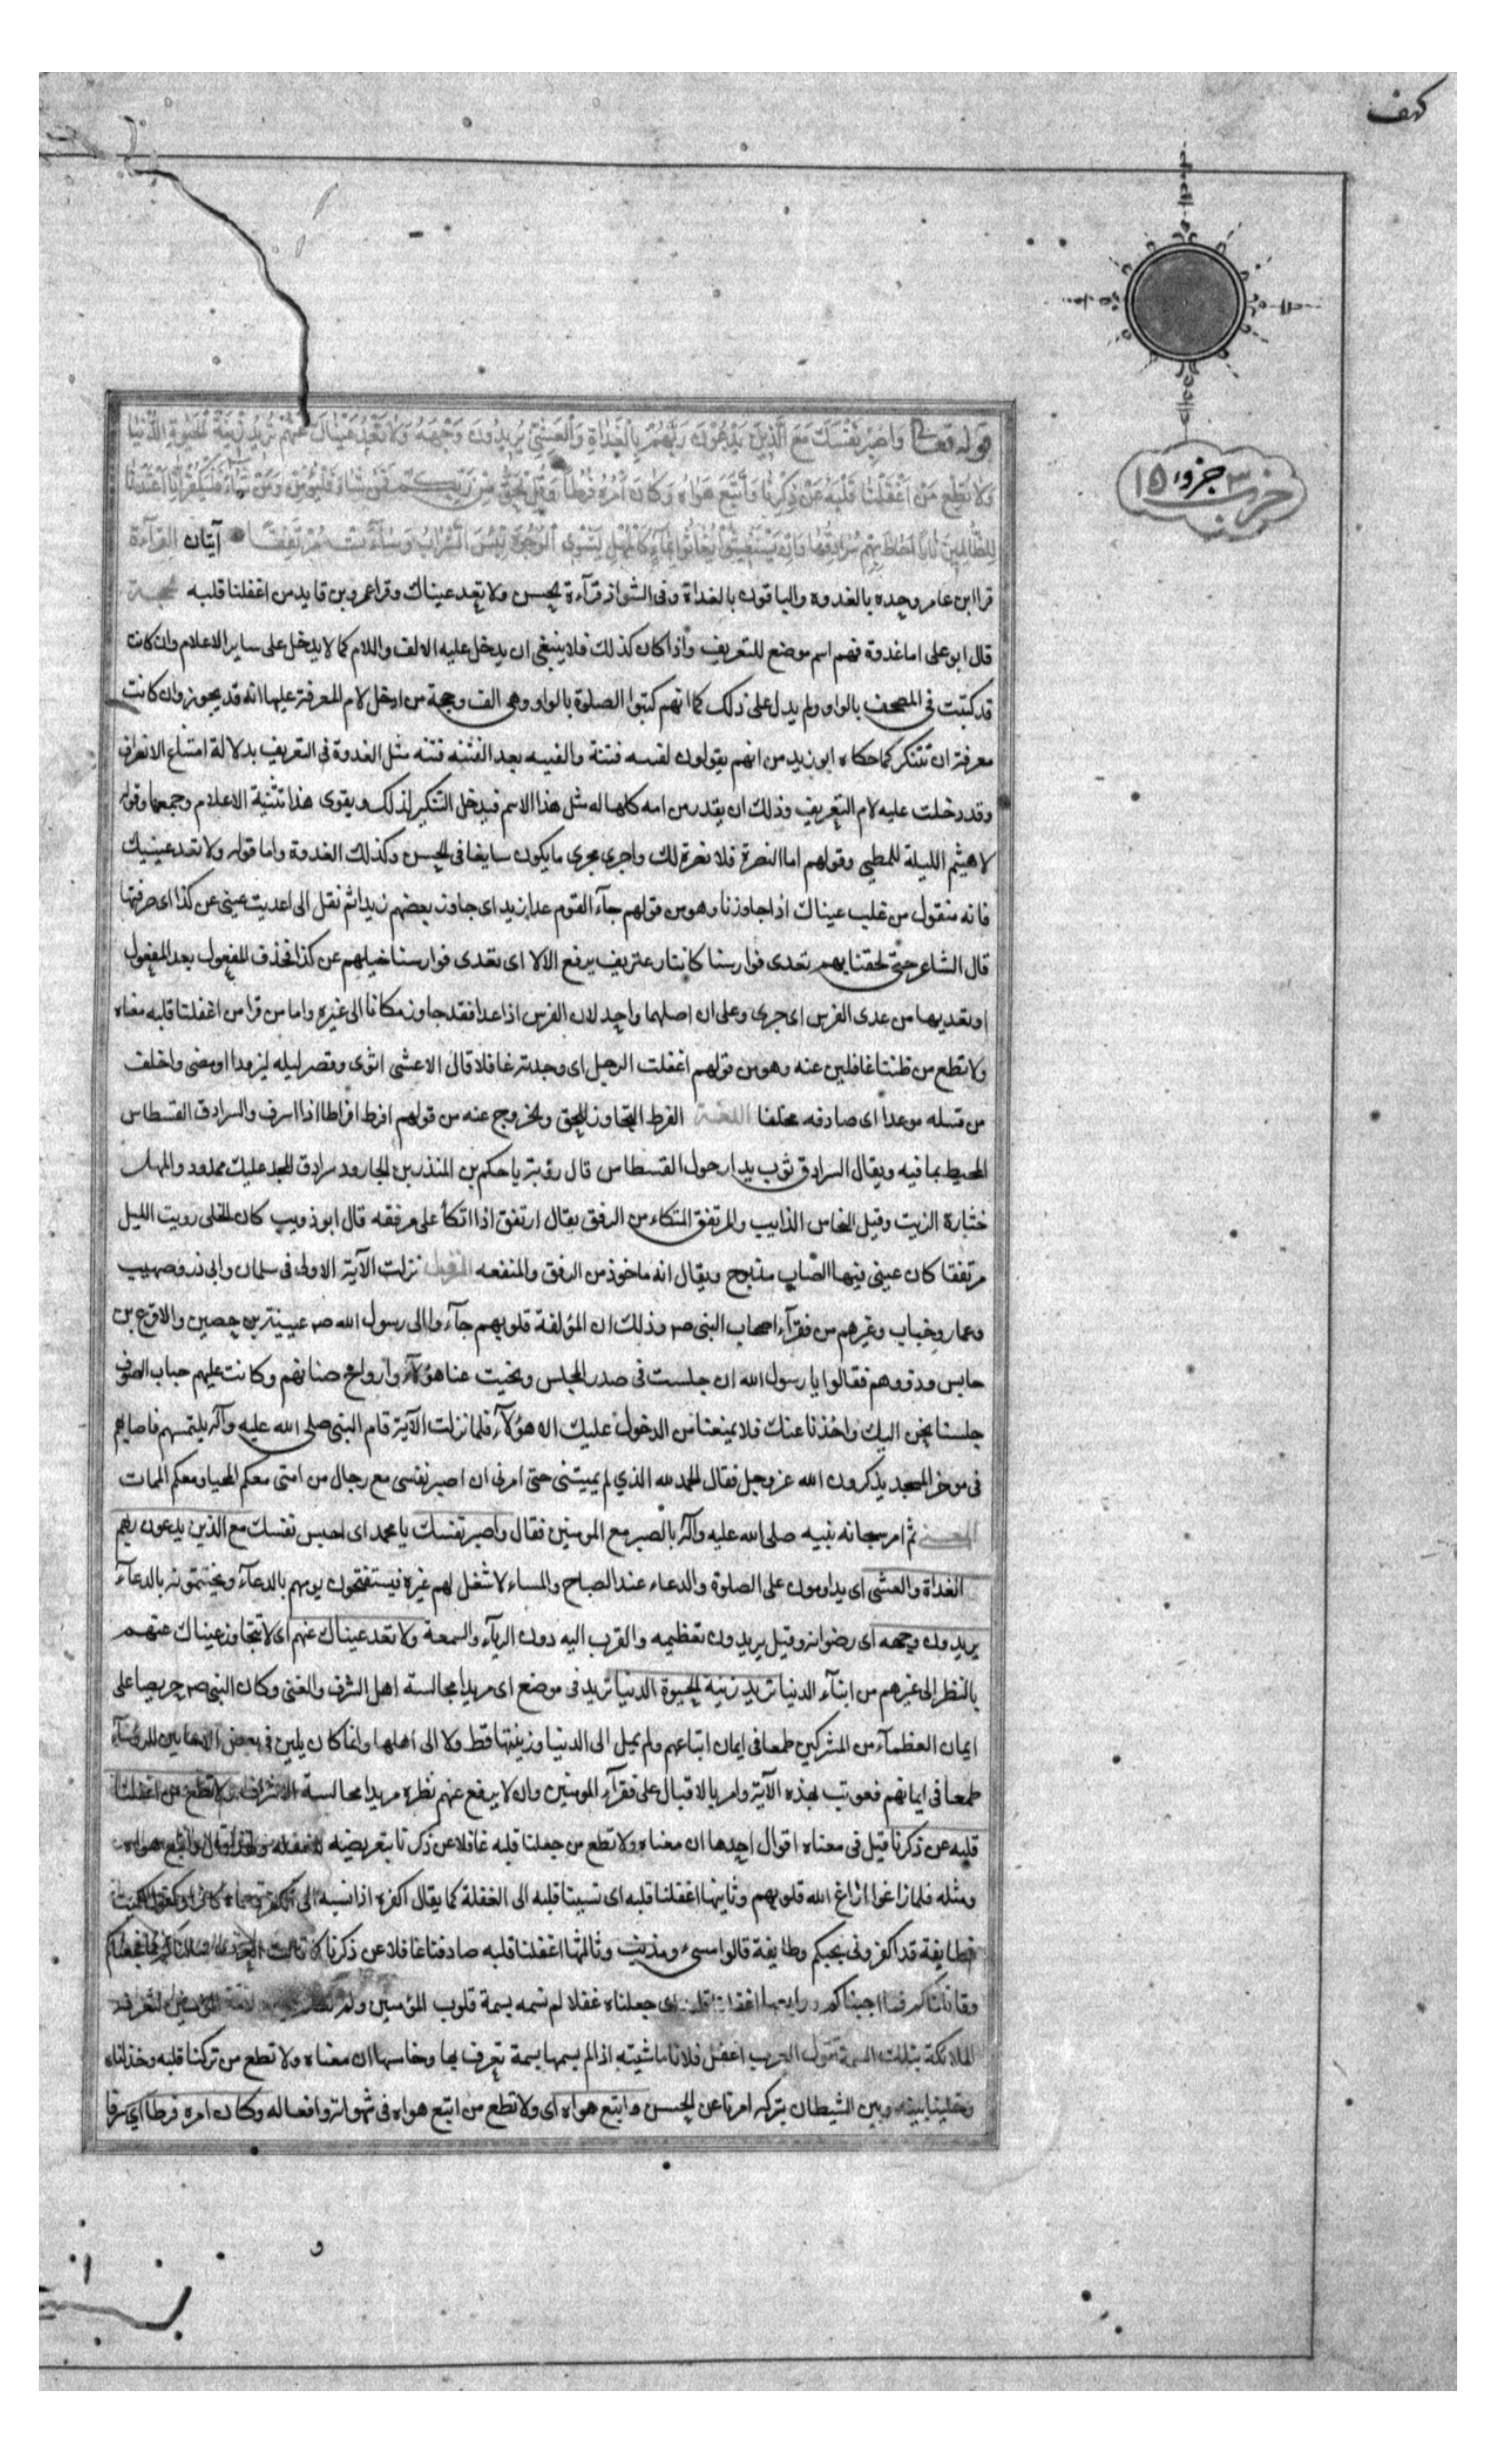 كهف
حزب ٣ جزو ١٥
قوله تعالى وَاصْبِرْ نَفْسَكَ مَعَ الَّذِينَ يَدْعُونَ رَبَّهُمْ بِالْغَدَاةِ وَالْعَشِيِّ يُرِيدُونَ وَجْهَهُ وَلَا تَعْدُ عَيْنَاكَ عَنْهُمْ تُرِيدُ زِينَةَ الْحَيٰوةِ الدُّنْيَا
وَلَا تُطِعْ مَنْ أَغْفَلْنَا قَلْبَهُ عَنْ ذِكْرِنَا وَاتَّبَعَ هَوَاهُ وَكَانَ أَمْرُهُ فُرُطًا وَقُلِ الْحَقُّ مِنْ رَبِّكُمْ فَمَنْ شَاءَ فَلْيُؤْمِنْ وَمَنْ شَاءَ فَلْيَكْفُرْ إِنَّا أَعْتَدْنَا
لِلظَّالِمِينَ نَارًا أَحَاطَ بِهِمْ سُرَادِقُهَا وَإِنْ يَسْتَغِيثُوا يُغَاثُوا بِمَاءٍ كَالْمُهْلِ يَشْوِي الْوُجُوهَ بِئْسَ الشَّرَابُ وَسَاءَتْ مُرْتَفَقًا آيتان القرآءة
قرا ابن عامر وحده بالغدوه والباقون بالغداة وفى الشواذ قرآءة الحسن ولا تعد عيناك وقرا عمرو بن فايد من اغفلنا قلبه الحجة
قال ابو على اما غدوة فهو اسم موضع للتعريف واذا كان كذلك فلا ينبغى ان يدخل عليه الالف واللام كما لا يدخل على ساير الاعلام وان كانت
قد كتبت فى المصحف بالواو ولم يدل على ذلك كما انهم كتبوا الصلوة بالواو وهى الف وحجة من ادخل لام المعرفة عليها انه قد يجوز وان كانت
معرفة ان تتنكر كما حكاه ابو زيد من انهم يقولون لقيته فينة والفينه بعد الفينه فينه مثل الغدوة فى التعريف بدلالة امتناع الانصراف
وقد دخلت عليه لام التعريف وذلك ان يقدر من امه كلها له مثل هذا الاسم فيدخل التنكير لذلك ويقوى هذا تثنية الاعلام وجمعها وقوله
لا هيثم الليلة للمطى وقولهم اما النضرة فلا نضرة لك واجرى مجرى ما يكون سايغا فى الحسن وكذلك الغدوة واما قوله ولا تعد عينيك
فانه منقول من عيناك اذا جاوزنا وهو من قولهم جآء القوم عدا زيد اى جاوز بعضهم زيدا ثم نقل الى اعديت عينى عن كذا اى صرفتها
قال الشاعر حتى لحقنا بهم تعدى فوارسنا كاننا رعن قف يرفع الالا اى تعدى فوارسنا خيلهم عن كذا فحذف المفعول بعد المفعول
او تعديها من عدى الفرس اى جرى وعلى ان اصلهما واحد لان الفرس اذا عدا فقد جاوز مكانا الى غيره واما من قرا من اغفلنا قلبه معناه
ولا تطع من ظننا غافلين عنه وهو من قولهم اغفلت الرجل اى وجدته غافلا قال الاعشى اثوى وقصر ليله ليزودا فمضى واخلف
من قتيله موعدا اى صادفه مخلفا اللغة الفرط التجاوز للحق والخروج عنه من قولهم افرط افراطا اذا اسرف والسرادق الفسطاس
المحيط بما فيه ويقال السرادق ثوب يدار حول الفسطاس قال رؤبة يا حكم بن المنذر بن الجارود سرادق المجد عليك ممدود والمهل
خثارة الزيت وقيل النحاس الذايب والمرتفق المتكاء من الرفق يقال ارتفق اذا اتكأ على مرفقه قال ابو ذويب كان الخلى رويت الليل
مرتفقا كان عينى فيها الصاب مذبوح ويقال انه ماخوذ من الرفق والمنفعه النزول نزلت الآية الاولى فى سلمان وابى ذر وصهيب
وعمار وخباب وغيرهم من فقرآء اصحاب النبى صم وذلك ان المؤلفة قلوبهم جآءوا الى رسول الله صم عيينة بن حصين والاقرع بن
حابس وذووهم فقالوا يا رسول الله ان جلست فى صدر المجلس ونحيت عنا هؤلآء وارواح صنانهم وكانت عليهم جباب الصوف
جلسنا نحن اليك واخذنا عنك فلا يمنعنا من الدخول عليك الا هؤلآء فلما نزلت الآية قام النبى صلى الله عليه وآله يلتمسهم فاصابهم
فى موخر المسجد يذكرون الله عز وجل فقال الحمد لله الذي لم يميتنى حتى امرنى ان اصبر نفسى مع رجال من امتى معكم المحيا ومعكم الممات
المعنى ثم امر سبحانه نبيه صلى الله عليه وآله بالصبر مع المومنين فقال واصبر نفسك يا محمد اى احبس نفسك مع الذين يدعون ربهم
الغداة والعشى اى يداومون على الصلوة والدعاء عند الصباح والمساء لا شغل لهم غيره فيستفتحون يومهم بالدعآء ويختمونه بالدعآء
يريدون وجهه اى رضوانه وقيل يريدون تعظيمه والقرب اليه دون الريآء والسمعة ولا تعد عيناك عنهم اى لا تتجاوز عيناك عنهم
بالنظر الى غيرهم من ابنآء الدنيا تريد زينة الحيوة الدنيا تريد فى موضع اى مريدا مجالسة اهل الشرف والغنى وكان النبى صم حريصا على
ايمان العظمآء من المشركين طمعا فى ايمان اتباعهم ولم يميل الى الدنيا وزينتها قط ولا الى اهلها وانما كان يلين فى بعض الاحايين للرؤسآء
طمعا فى ايمانهم فعوتب بهذه الآية وامر بالاقبال على فقرآء المومنين وان لا يرفع عنهم نظره مريدا مجالسة الاشراف ولا تطع من اغفلنا
قلبه عن ذكرنا قيل فى معناه اقوال احدها ان معناه ولا تطع من جعلنا قلبه غافلا عن ذكرنا بتعريضه للغفله ولهذا قال واتبع هواه
ومثله فلما زاغوا ازاغ الله قلوبهم وثانيها اغفلنا قلبه اى نسبنا قلبه الى الغفلة كما يقال اكفره اذا نسبه الى الكفر
فطايفة قد اكفرونى بحبكم وطايفة قالوا مسىء ومذنب وثالثها اغفلنا قلبه صادفنا غافلا عن ذكرنا
وقاتلناكم فما اجبناكم ورابعها اغفلنا قلبه اى جعلناه غفلا لم نسمه بسمة قلوب المؤمنين ولم
الملائكة بتلك السمة تقول العرب اغفل فلانا ماشيته اذا لم يسمها بسمة تعرف بها وخامسها ان معناه ولا تطع من تركنا قلبه وخذلناه
وخلينا بينه وبين الشيطان بتركه امرنا عن الحسن واتبع هواه اى ولا تطع من اتبع هواه فى شهواته وافعاله وكان امره فرطا اي سرفا
و